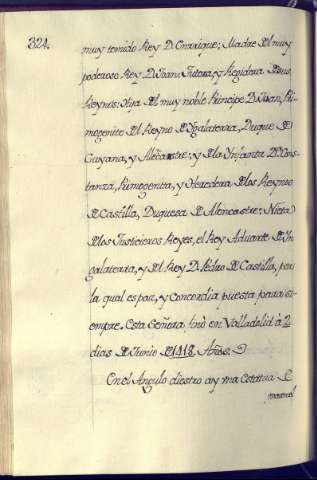 324.
muy temido Rey D. Enrrique; Madre del muy
poderoso Rey D. Juan; Tutora, y Regidora de sus
Reynos; Hija del muy noble Principe D. Juan, Pri-
mogenito del Reyno de Ygalaterra, Duque de
Guyana, y Alencastre; y de la Ynfanta Dª Cons-
tanza, Primogenita, y Heredera de los Reynos
de Castilla, Duquesa de Alencastre; Nieta
de los Justicieros Reyes, el Rey Aduarte de Yn-
galaterra, y del Rey D. Pedro de Castilla, por
la qual es paz, y concordia puesta para si-
empre. Esta Señora finò en Valladolid à 2
dias de Junio de 1418. Años.
En el Angulo diestro ay una Estatua de
marmol